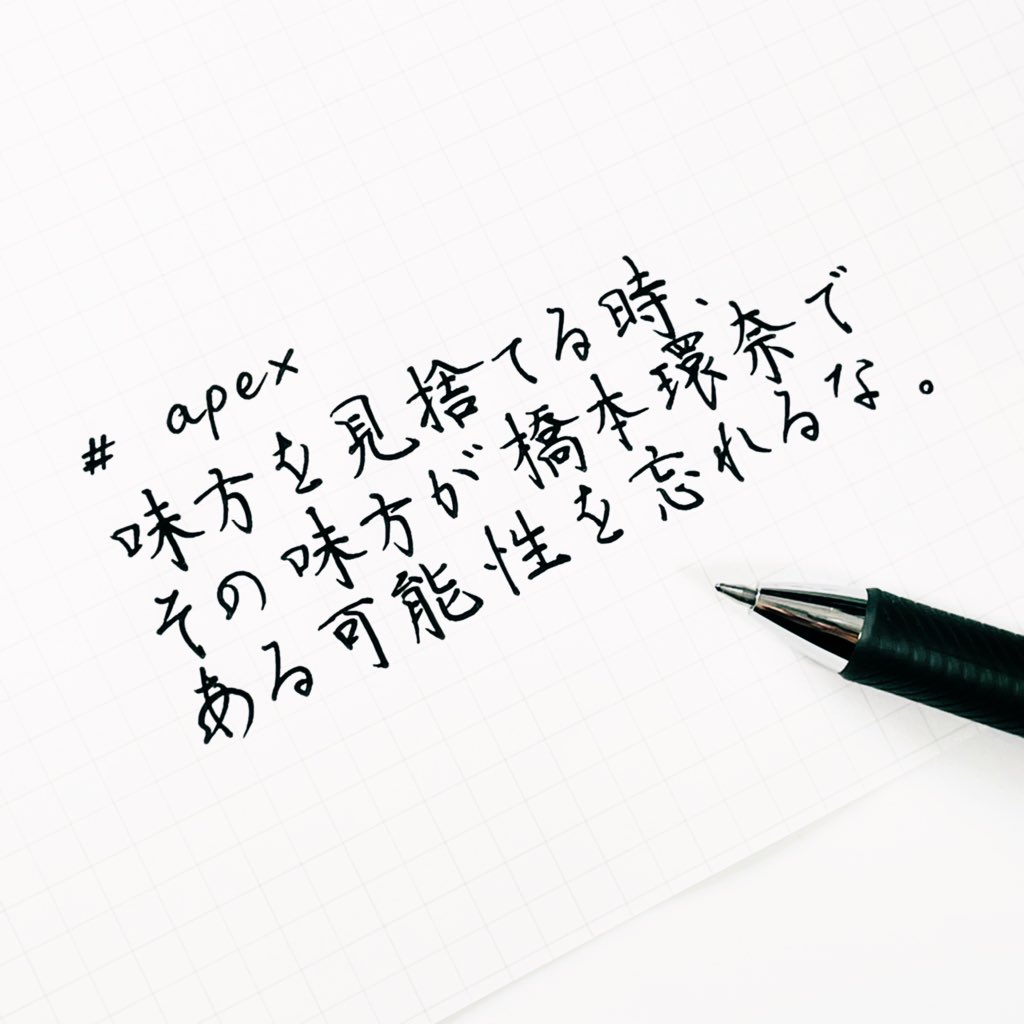 # apex
味方を見捨てる時、
その味方が橋本環奈で
ある可能性を忘れるな。